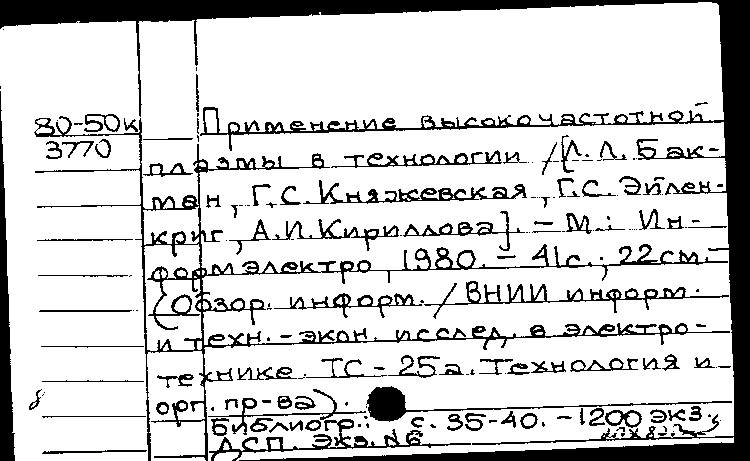 80-50к
3770
Применение высокочастотной
плазмы в технологии /[Л.Л. Бак-
ман, Г.С. Княжевская, Г.С. Эйлен-
криг, А.И. Кириллова]. - М.: Ин-
формэлектро, 1980. - 41с.; 22см. -
(Обзор. информ. / ВНИИ информ.
и техн.-экон. исслед. в электро-
технике. ТС-25а. Технология и
орг. пр-ва).
8
Библиогр.: с. 35-40. - 1200 экз.
ДСП. Экз. №6.